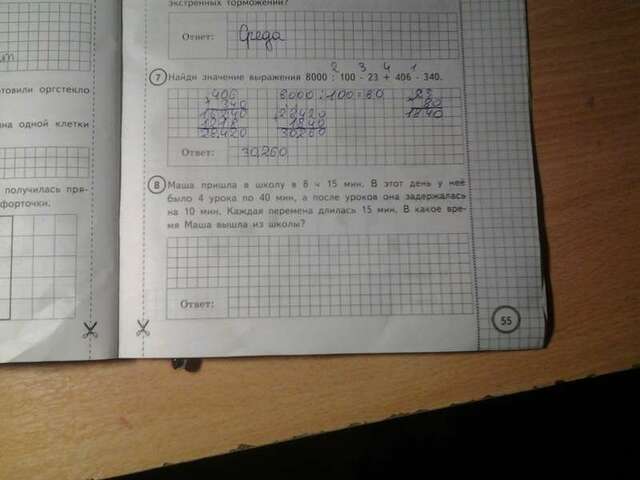 экстренных торможений?
Ответ: Среда
2 3 4 1
7 Найди значение выражения 8000 : 100 - 23 + 406 - 340.
406 8000 : 100 = 80 23
340 80
16240 28420 1840
1218 1840
28.420 30.260
Ответ: 30.260
8 Маша пришла в школу в 8 ч 15 мин. В этот день у неё
было 4 урока по 40 мин, а после уроков она задержалась
на 10 мин. Каждая перемена длилась 15 мин. В какое вре-
мя Маша вышла из школы?
Ответ:
55
товили оргстекло
на одной клетки
получилась пря-
форточки.